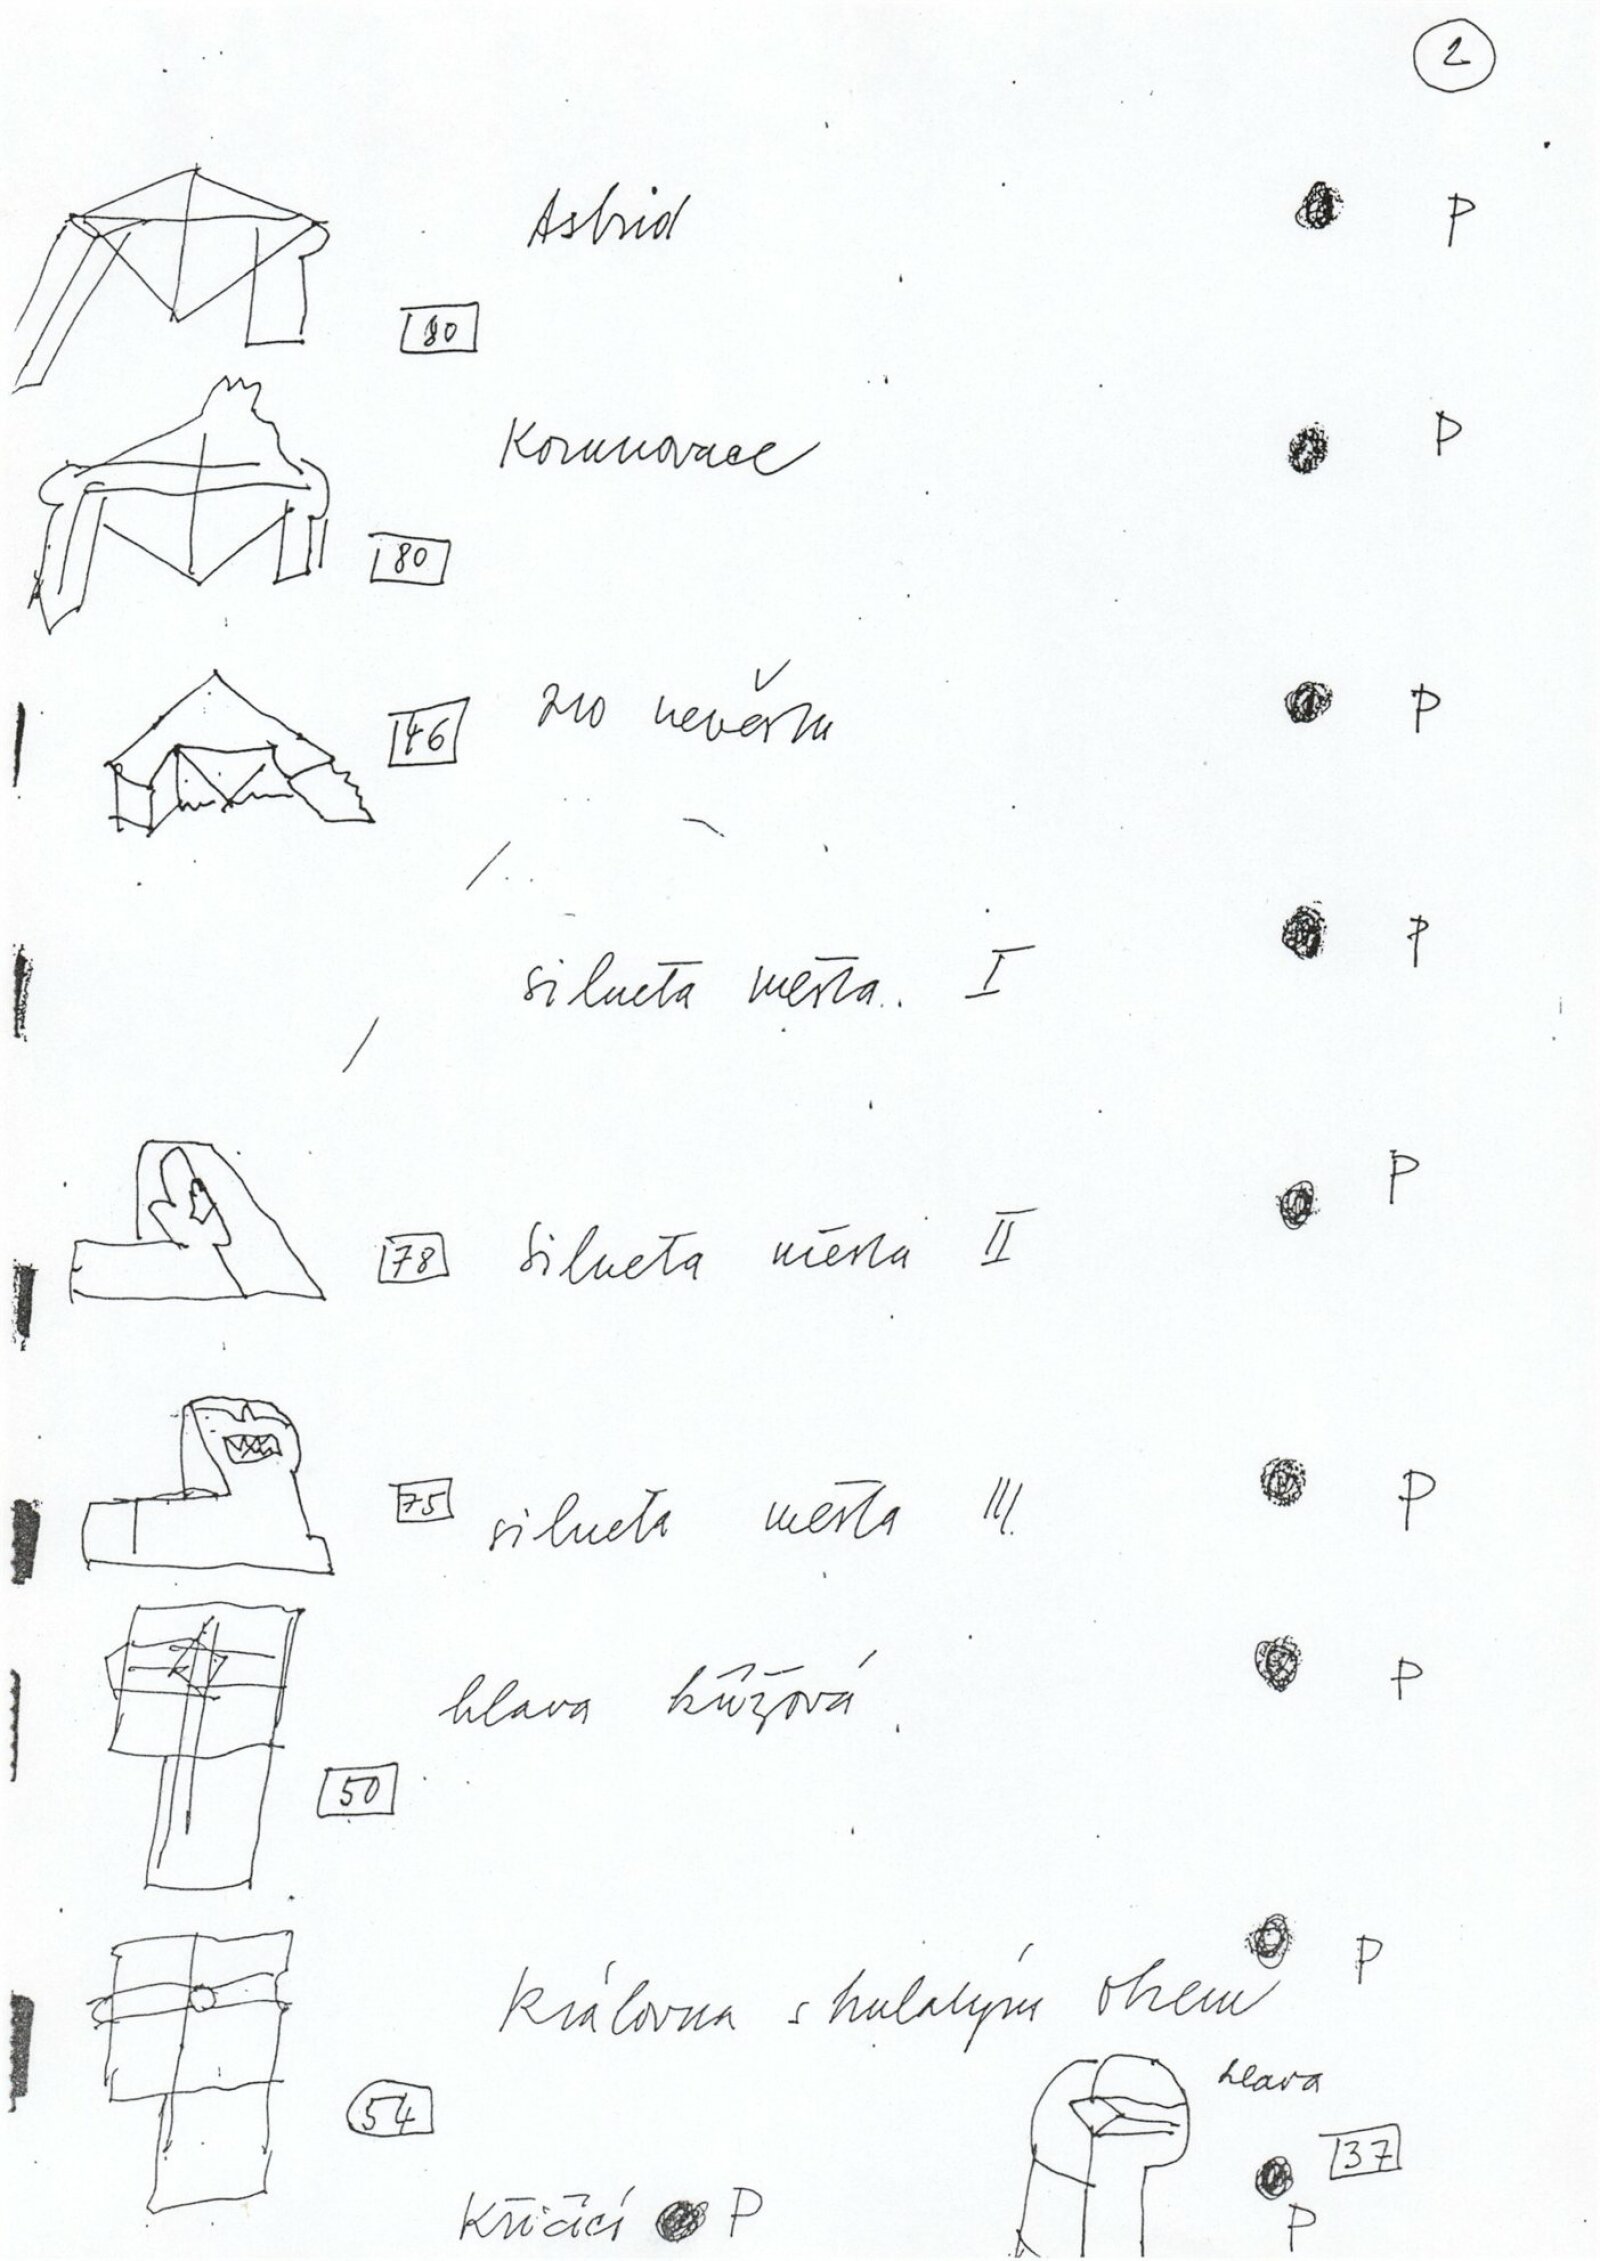 2
Astrid P
80
Korunovace P
80
46 zlo nevěsta P
silueta města. I P
P
78 silueta města II
75 silueta města III. P
hlava křížová P
50
P
Královna s kulatým okem
hlava
54
37
Křičící P P